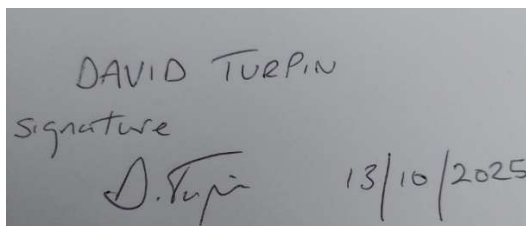 DAVID TURPIN
Signature
D. Turpin 13/10/2025